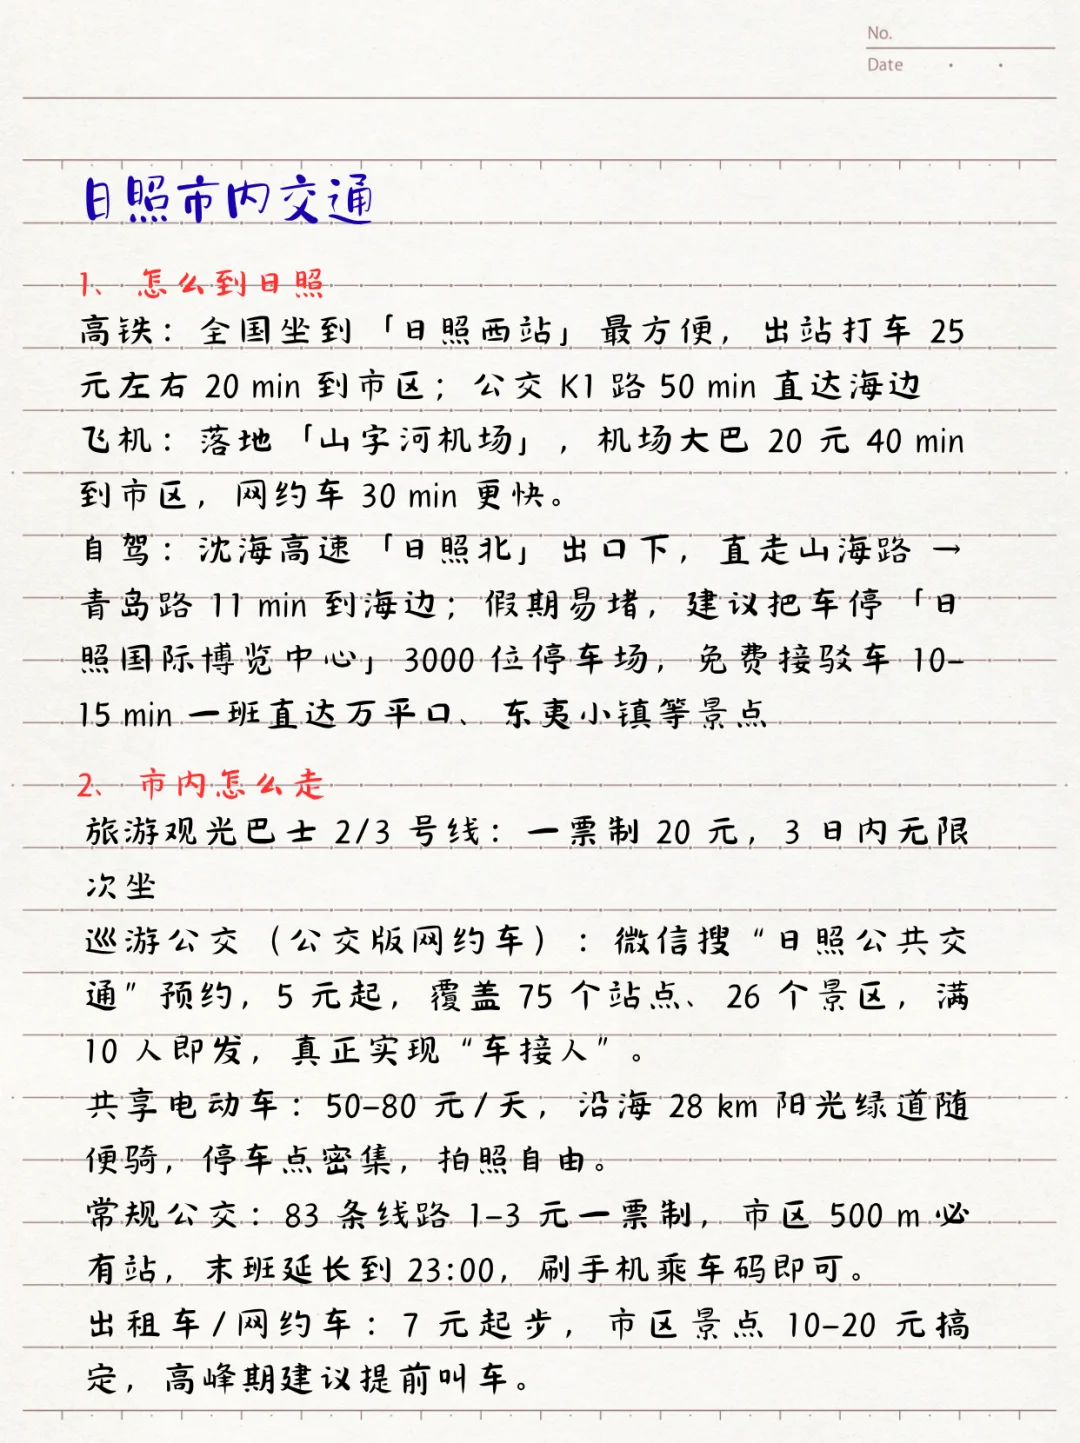 No.
Date
日照市内交通
1、怎么到日照
高铁：全国坐到「日照西站」最方便，出站打车 25
元左右 20 min 到市区；公交 K1 路 50 min 直达海边
飞机：落地「山字河机场」，机场大巴 20 元 40 min
到市区，网约车 30 min 更快。
自驾：沈海高速「日照北」出口下，直走山海路 →
青岛路 11 min 到海边；假期易堵，建议把车停「日
照国际博览中心」3000 位停车场，免费接驳车 10-
15 min 一班直达万平口、东夷小镇等景点
2、市内怎么走
旅游观光巴士 2/3 号线：一票制 20 元，3 日内无限
次坐
巡游公交（公交版网约车）：微信搜“日照公共交
通”预约，5 元起，覆盖 75 个站点、26 个景区，满
10 人即发，真正实现“车接人”。
共享电动车：50-80 元/天，沿海 28 km 阳光绿道随
便骑，停车点密集，拍照自由。
常规公交：83 条线路 1-3 元一票制，市区 500 m 必
有站，末班延长到 23:00，刷手机乘车码即可。
出租车/网约车：7 元起步，市区景点 10-20 元搞
定，高峰期建议提前叫车。